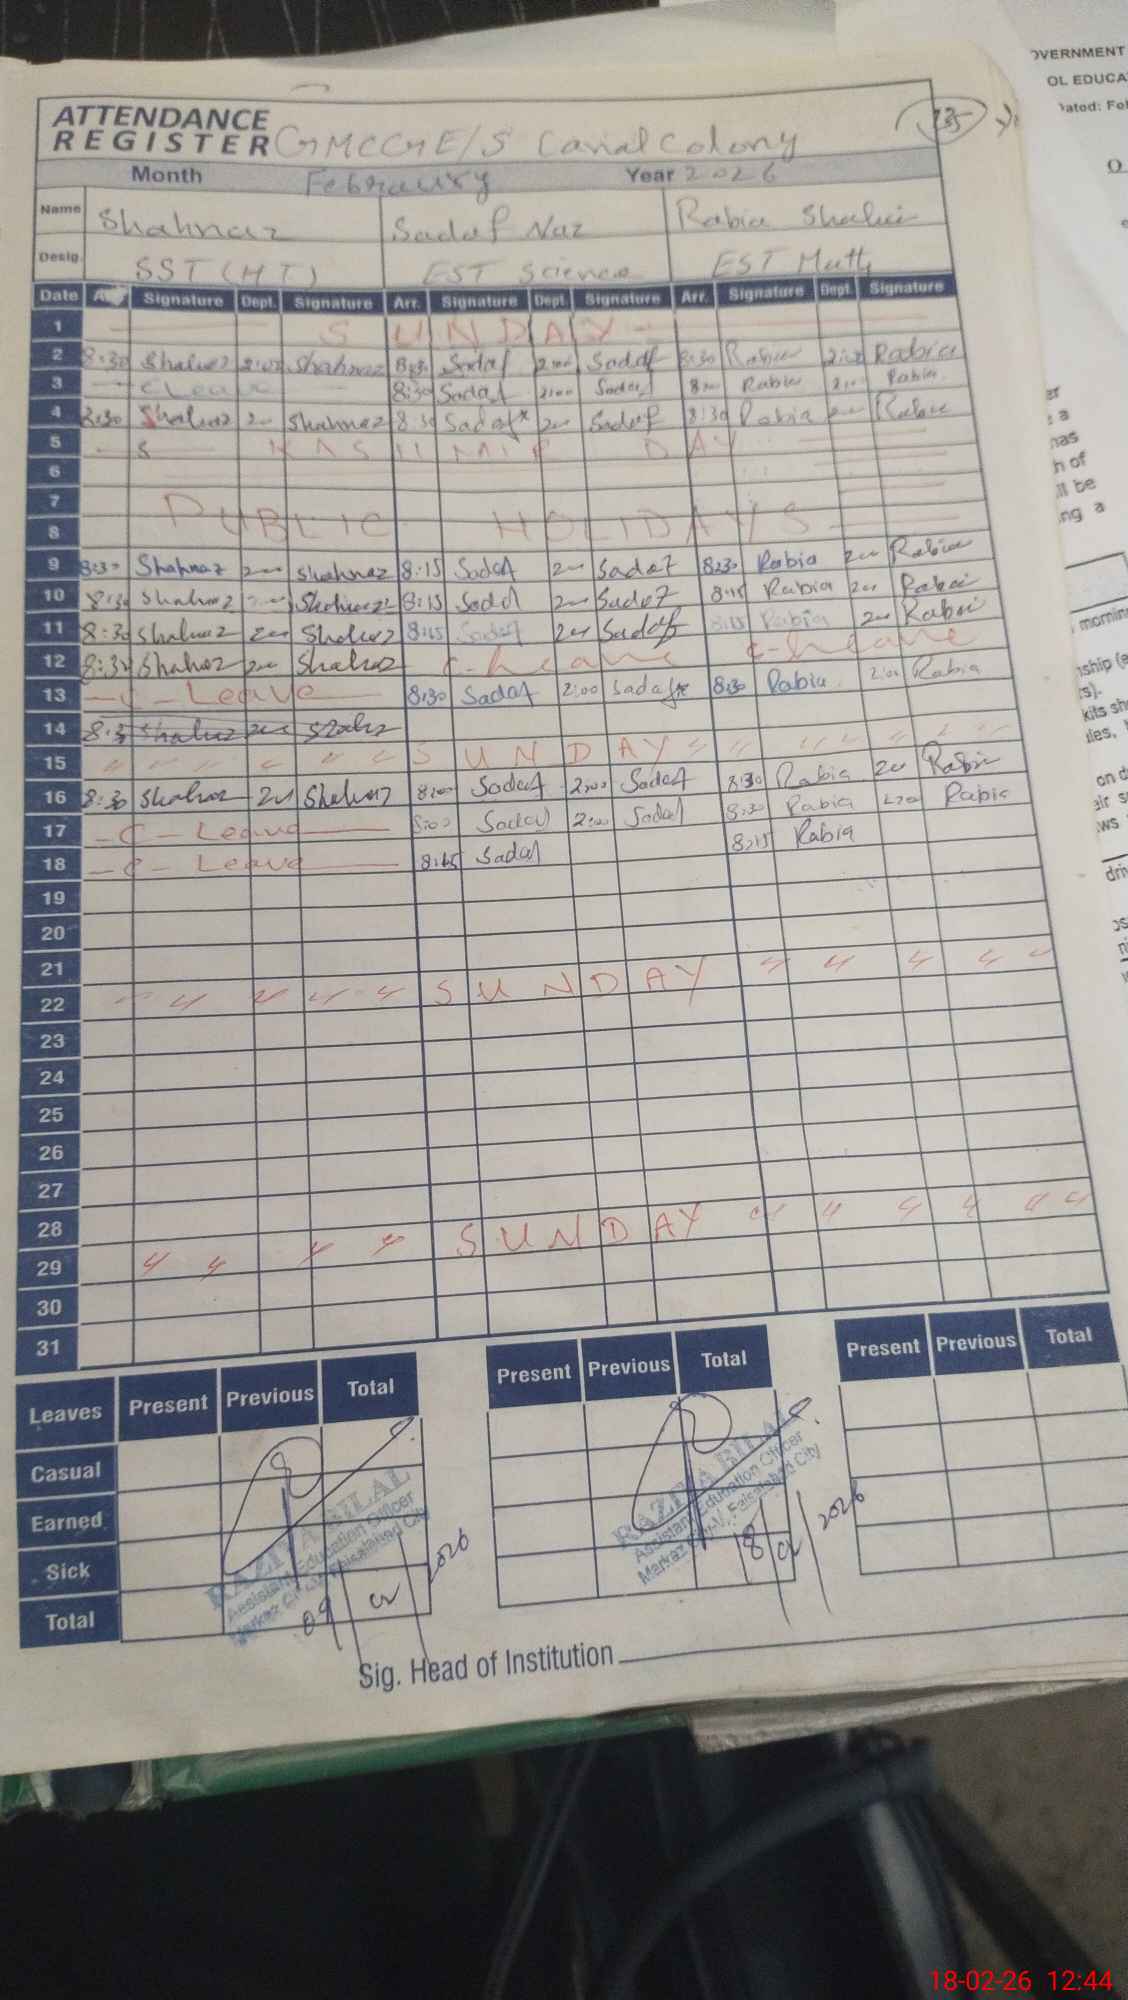 OVERNMENT
OL EDUCA
ATTENDANCE
REGISTER GMCGE/S Canal Colony
Month Febraury Year 2026
Name Shahnaz Sadaf Naz Rabia
Desig. SST (HT) EST Science EST Math
Date Signature Dept. Signature Arr. Signature Dept. Signature Arr. Signature Dept. Signature
1 SUNDAY
2 8:30 Shahnaz 2:00 Shahnaz 8:30 Sadaf 2:00 Sadaf 8:30 Rabia 2:00 Rabia
3 C Leave 8:30 Sadaf 2:00 Sadaf Rabia 2:00 Rabia
4 8:30 Shahnaz Shahnaz 8:30 Sadaf Sadaf 8:30 Rabia Rabia
5 KASHMIR DAY
6
7 PUBLIC HOLIDAYS
8
9 8:30 Shahnaz Shahnaz 8:15 Sadaf Sadaf 8:30 Rabia Rabia
10 8:30 Shahnaz Shahnaz 8:15 Sadaf Sadaf 8:15 Rabia Rabia
11 8:30 Shahnaz Shahnaz 8:15 Sadaf Sadaf 8:15 Rabia Rabia
12 8:30 Shahnaz Shahnaz C-Leave C-Leave
13 - C - Leave 8:30 Sadaf 2:00 Sadaf 8:30 Rabia 2:00 Rabia
14 8:3 Shahnaz Shahnaz
15 SUNDAY
16 8:30 Shahnaz Shahnaz 8:00 Sadaf 2:00 Sadaf 8:30 Rabia Rabia
17 - C - Leave 8:00 Sadaf 2:00 Sadaf 8:30 Rabia Rabia
18 - C - Leave 8:15 Sadaf 8:15 Rabia
19
20
21
22 SUNDAY
23
24
25
26
27
28
29 SUNDAY
30
31
Leaves Present Previous Total Present Previous Total Present Previous Total
Casual
Earned
Sick
Total
RAZIYA BILAL
Assistant Education Officer
Markaz City-V, Faisalabad City
09/02/2026
RAZIYA BILAL
Assistant Education Officer
Markaz City-V, Faisalabad City
18/02/2026
Sig. Head of Institution
18-02-26 12:44